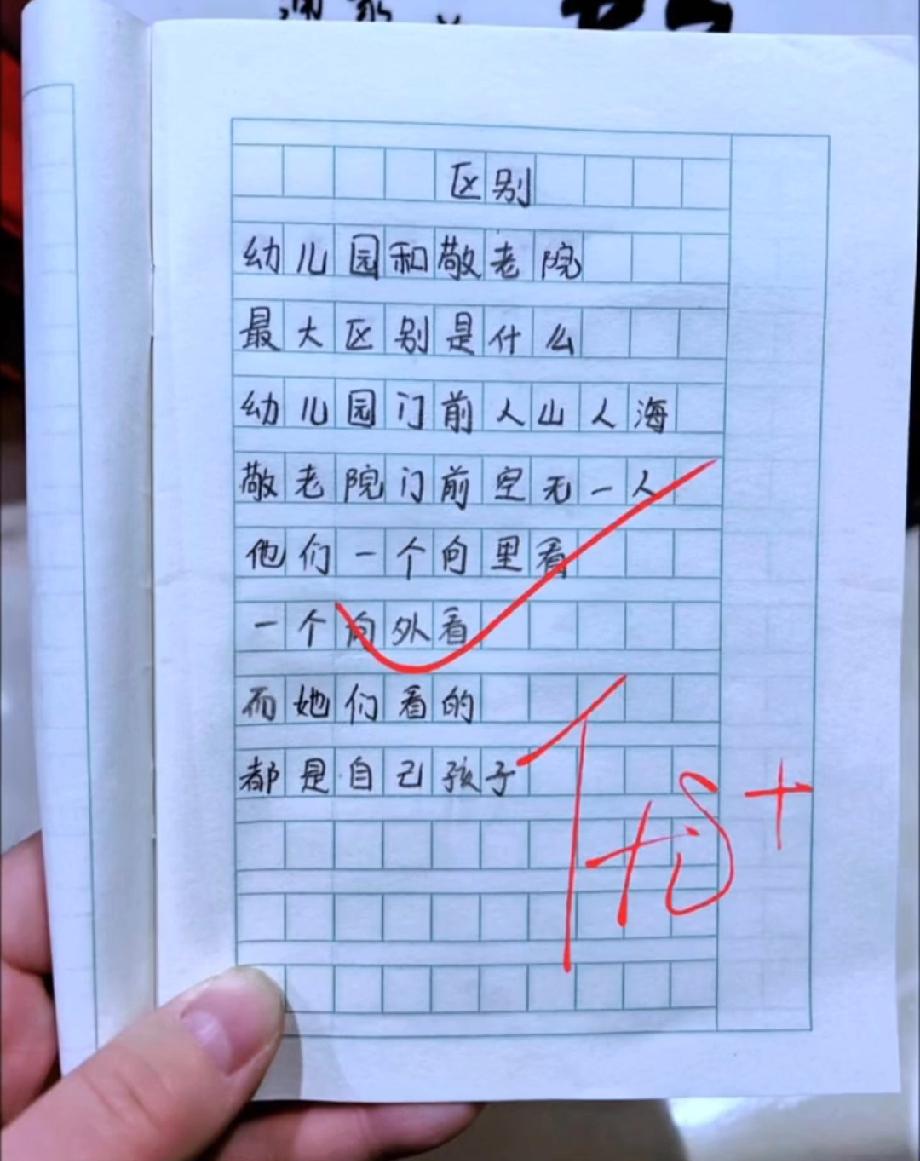 区别
幼儿园和敬老院
最大区别是什么
幼儿园门前人山人海
敬老院门前空无一人
他们一个向里看
一个向外看
而她们看的
都是自己孩子